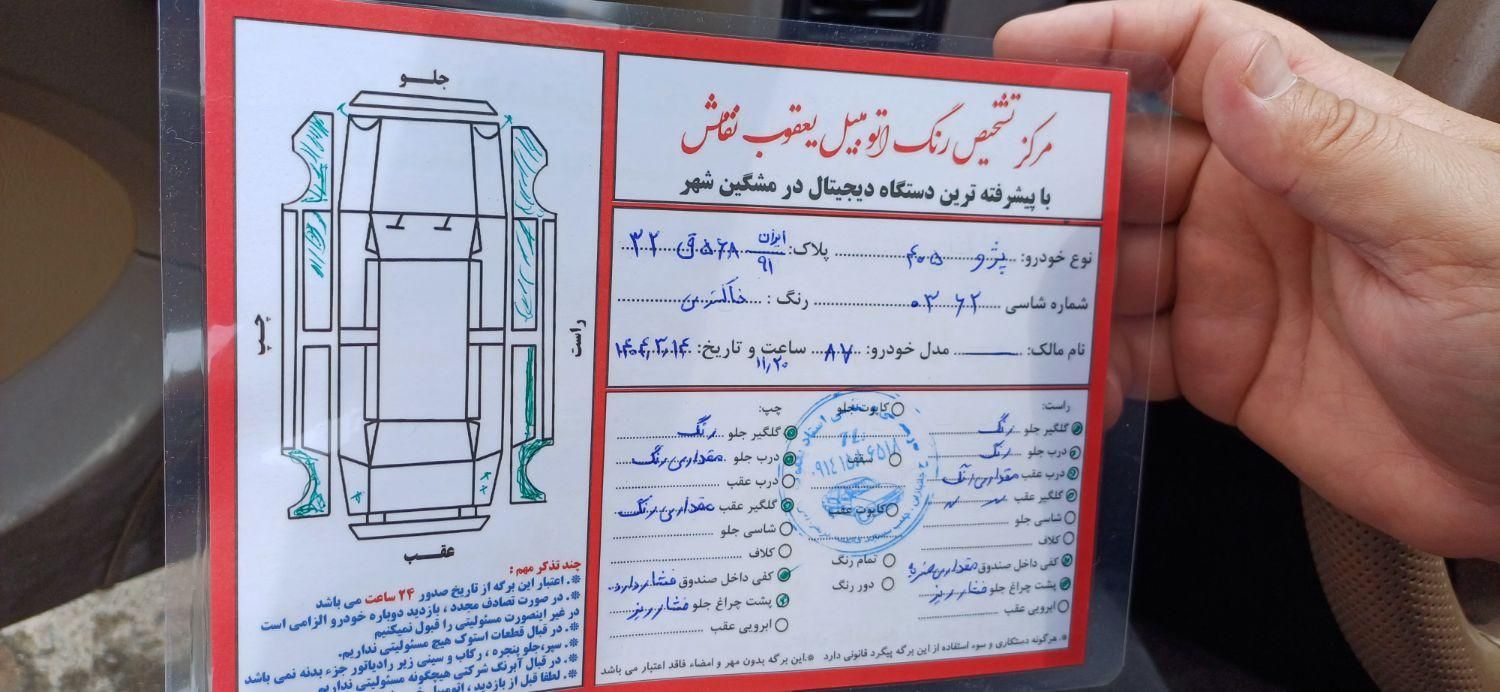 مرکز تشخیص رنگ اتومبیل یعقوب نقاش
با پیشرفته ترین دستگاه دیجیتال در مشگین شهر
نوع خودرو: پژو ۴۰۵ پلاک: ایران ۹۱ ۵۶۸ ق ۳۲
شماره شاسی ۰۳۶۲ رنگ : خاکستری
نام مالک: مدل خودرو: ۸۷ ساعت و تاریخ: ۱۴۰۴,۳,۱۴
۱۱,۲۰
راست:
گلگیر جلو رنگ
درب جلو رنگ
درب عقب مقداری رنگ
گلگیر عقب
شاسی جلو
کلاف
کفی داخل صندوق مقداری ضربه
پشت چراغ جلو فشار ریز
ابرویی عقب
کاپوت جلو
سقف
کاپوت عقب
تمام رنگ
دور رنگ
چپ:
گلگیر جلو رنگ
درب جلو مقداری رنگ
درب عقب
گلگیر عقب مقداری رنگ
شاسی جلو
کلاف
کفی داخل صندوق فشار دارد
پشت چراغ جلو فشار ریز
ابرویی عقب
*. هرگونه دستکاری و سوء استفاده از این برگه پیگرد قانونی دارد *.این برگه بدون مهر و امضاء فاقد اعتبار می باشد
جلــو
راست
چپ
عقــب
چند تذکر مهم :
*. اعتبار این برگه از تاریخ صدور ۲۴ ساعت می باشد
*. در صورت تصادف مجدد ، بازدید دوباره خودرو الزامی است
در غیر اینصورت مسئولیتی را قبول نمیکنیم
*. در قبال قطعات استوک هیچ مسئولیتی نداریم.
*. سپر،جلو پنجره ، رکاب و سینی زیر رادیاتور جزء بدنه نمی باشد
*. در قبال آبرنگ شرکتی هیچگونه مسئولیتی نداریم
*. لطفا قبل از بازدید ، اتومبیل